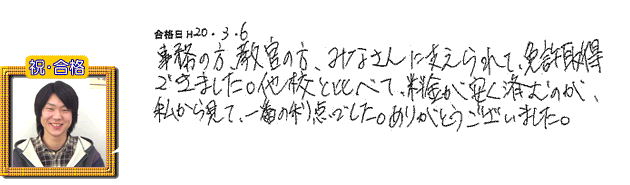 合格日 H20・3・6
祝・合格
事務の方、教官の方、みなさんに支えられて、免許取得
できました。他校と比べて、料金が安く済むのが、
私から見て、一番の利点でした。ありがとうございました。